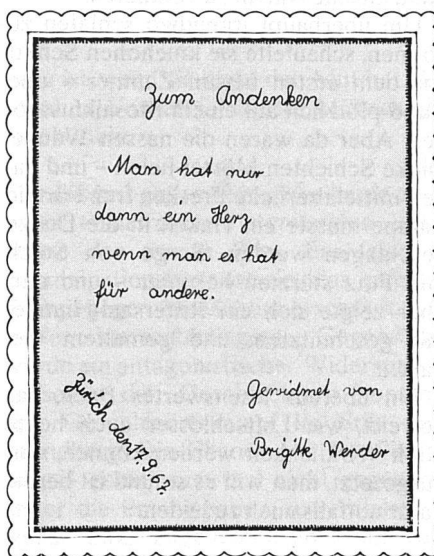 Zum Andenken
Man hat nur
dann ein Herz
wenn man es hat
für andere.
Zürich den 17.9.67.
Gewidmet von
Brigitte Werder